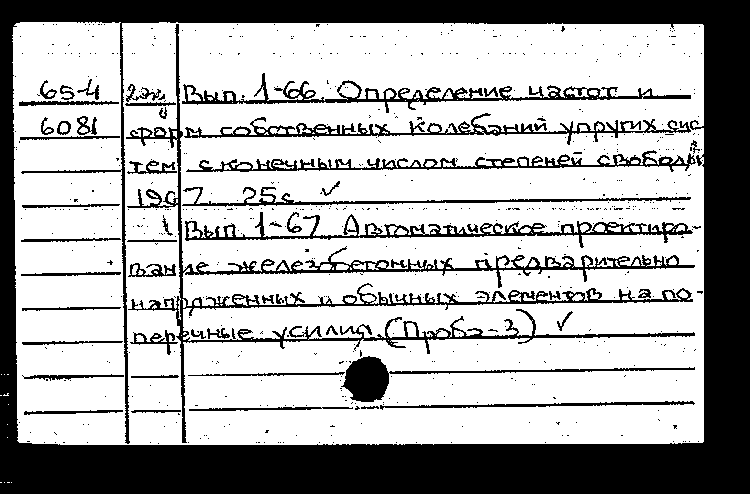 65-4 2эк Вып. 1-66. Определение частот и
6081 форм собственных колебаний упругих сис
тем с конечным числом степеней свободы
1967. 25с. ✓
Вып. 1-67 Автоматическое проектиро-
вание железобетонных предварительно
напряженных и обычных элементов на по-
перечные усилия (Проба-3) ✓